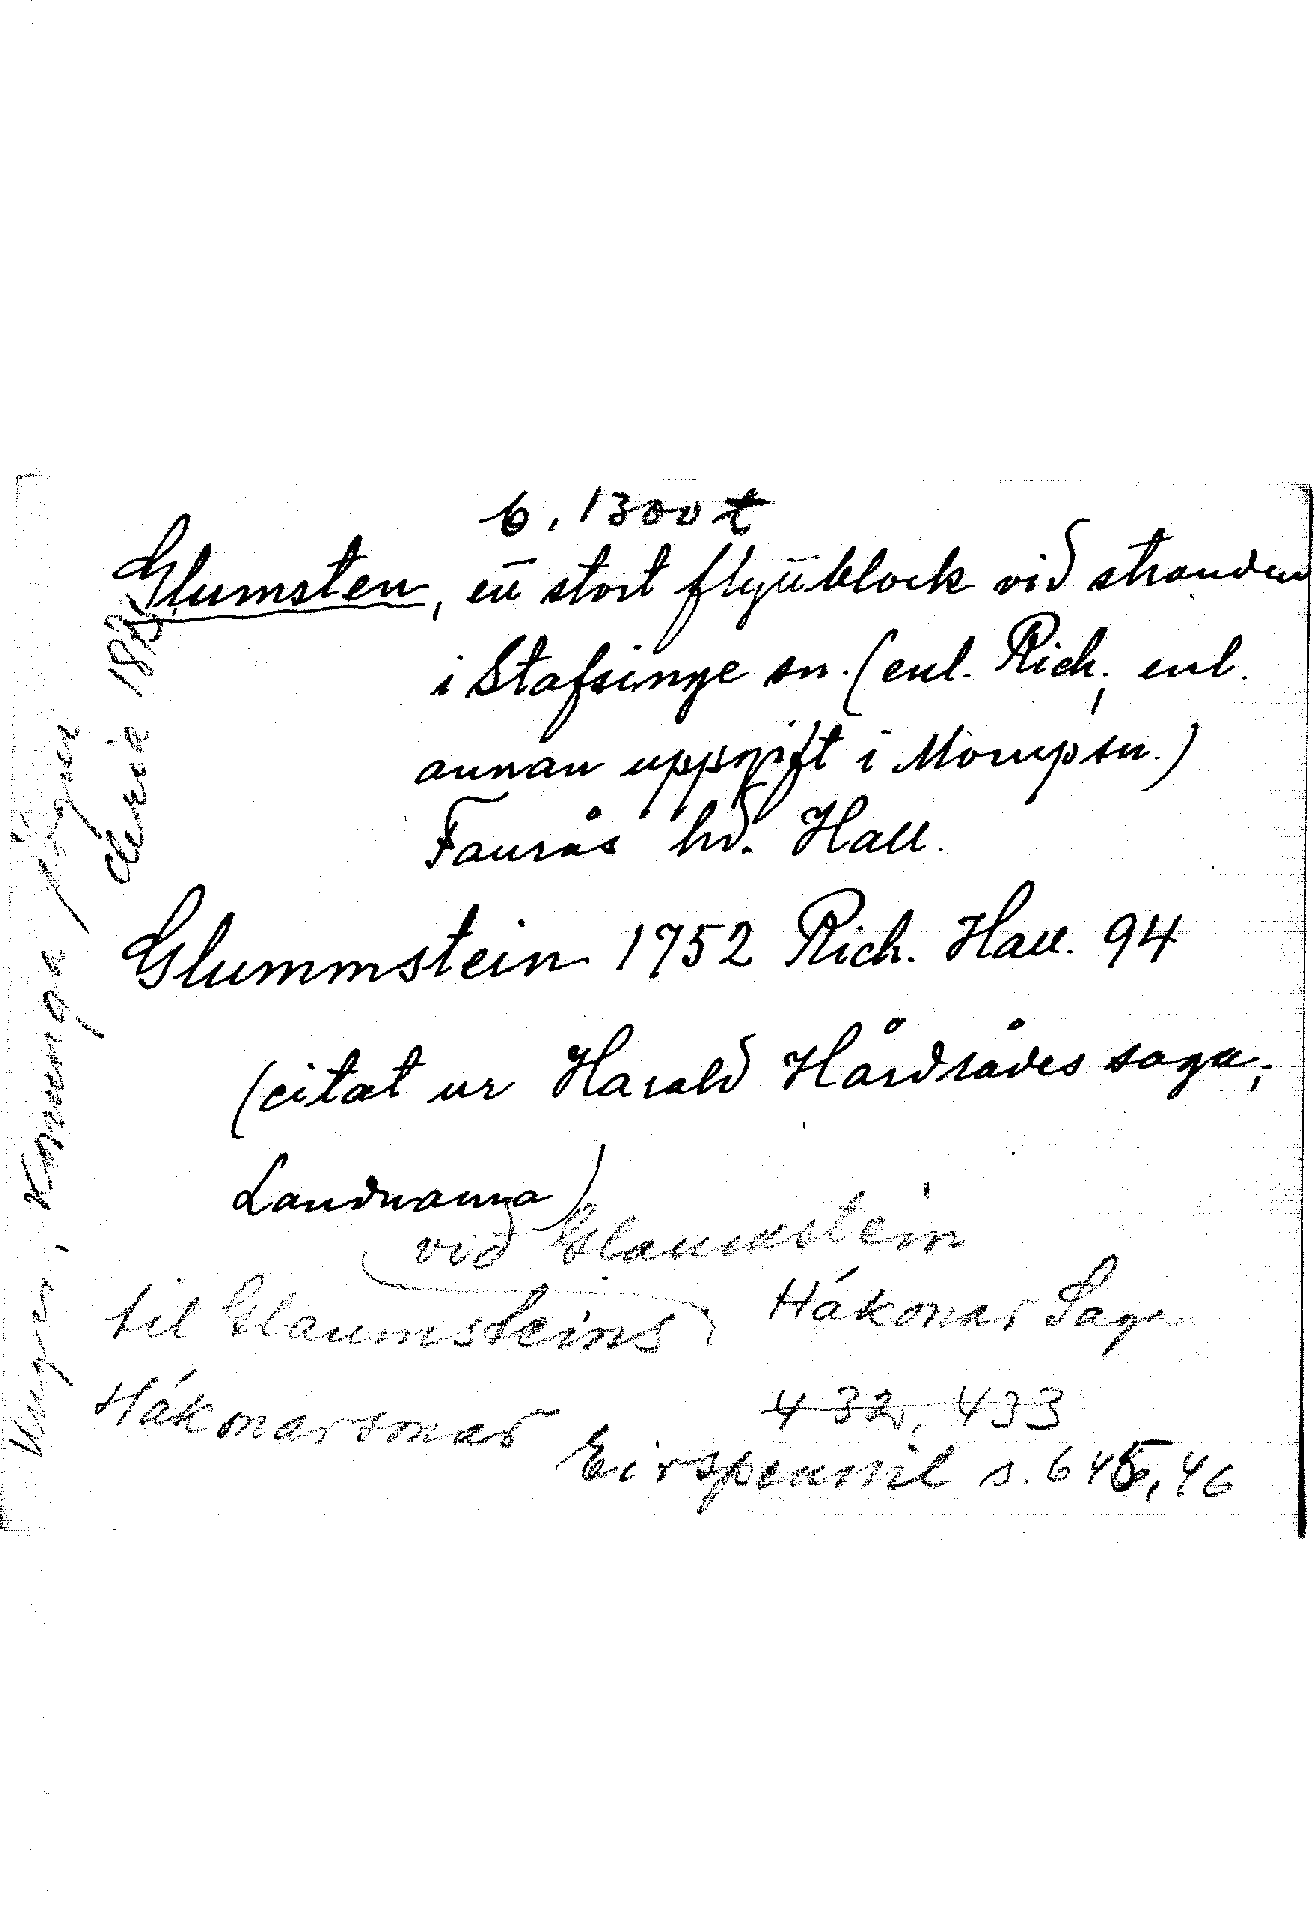 b. 1300 t
Glumsten, ett stort flyttblock vid stranden
i Stafsinge sn. (enl. Rich., enl.
annan uppgift i Morup sn.)
Faurås hd. Hall.
Glummstein 1752 Rich. Hall. 94
(citat ur Harald Hårdrådes saga;
Landnama)
við Glaumstein
til Glaumsteins, Hákonar Saga
Hákonarsonar 432, 433
Eirspennil s. 645, 46
Unger, Konunga sögur